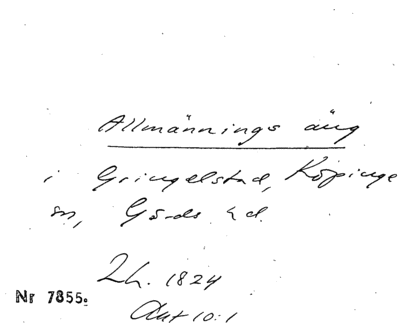 Allmännings äng
i Gringelstad, Köpinge
sn, Gärds hd.
Lh. 1824
Nr 7855.
Akt 10:1